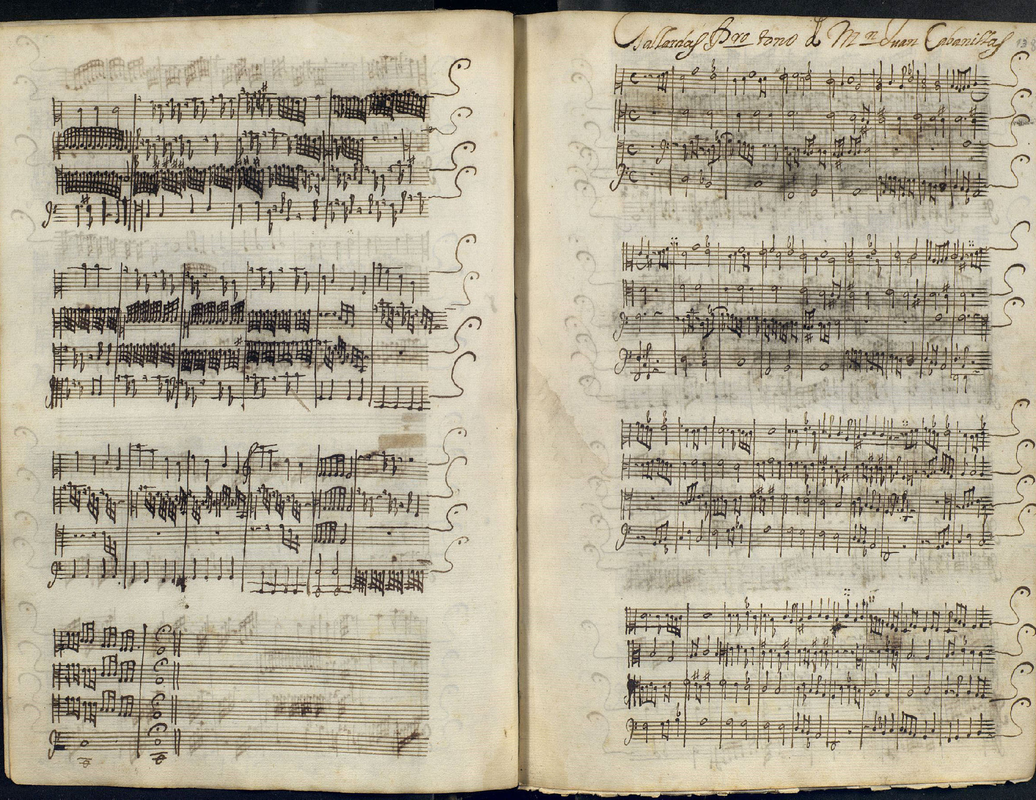 Gallardas Pro tono d Mn Juan Cabanillas